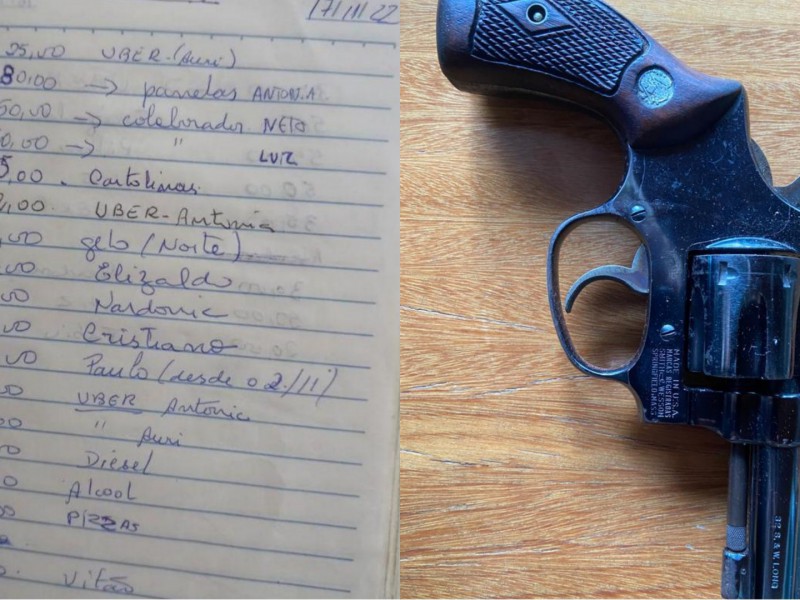 17/11/22
25,00 UBER (Auri)
80,00 → panelas ANTONIA
50,00 → colaborador NETO
50,00 → " LUIZ
5,00 . Cartolinas
,00. UBER-Antonia
,00 gelo (Norte)
,00 Elizaldo
,00 Nardonic
,00 Cristiano
,00 Paulo (desde o 2/11)
00 UBER Antonia
00 " Auri
0 Diesel
0 Alcool
00 PIZZAS
Vitão
MADE IN U.S.A.
MARCAS REGISTRADAS
SMITH & WESSON
SPRINGFIELD, MASS
32 S.&W. LONG